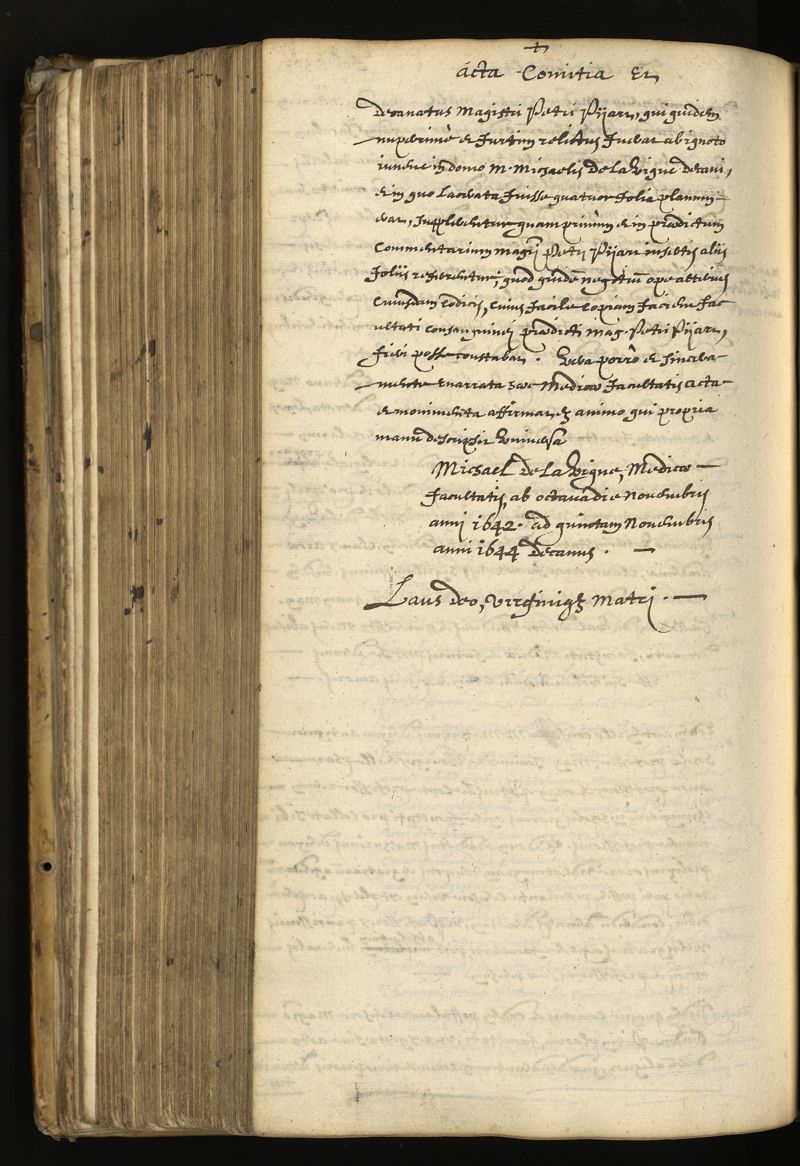 +
Acta Comitia Et
decanatus Magistri Petri Pijart, qui quidem
nuperrimè et furtim relictus fuerat ab ignoto
iuvene in domo M. Michaelis De La Vigne decani,
et in quo lacerata fuisse quatuor folia planum
erat, supplerentur quamprimùm et in prædictum
Commentarium magri Petri Pijart insertis aliis
foliis referrentur, quod quidē negotiū ope alterius
Cuiusdam Codicis, Cuius facile Copiam facient fac
ultati Consanguinei prædicti mag. Petri Pijart,
fieri posse constabat. Vera porrò et sincera
mente enarrata hæc Medicæ facultatis Acta
et monimenta affirmat ex animo qui propria
manu descripsit Universa
Michael De La Vigne, Medicæ
facultatis, ab octava die Novembris
anni 1642. ad quintam Novembris
anni 1644 decanus.
Laus deo, virginiq; Matri.